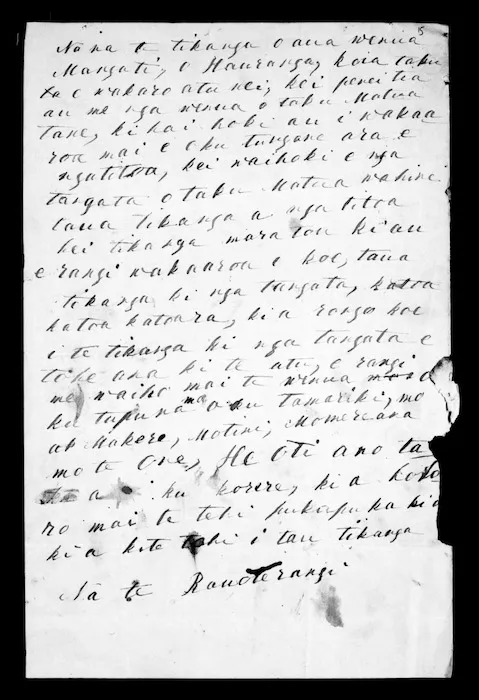 5
Na na te tikanga o aua wenua
Mangati, o Hauranga, koia taku
ka e wakaro atu nei, kei peneitia
au me nga wenua o taku Matua
tane, ki hai hoki au i wakaa
roa mai e oku tungane ara e
ngatitoa, kei waihoki e nga
tangata o taku Matua wahine
taua tikanga a nga titoa
hei tikanga mara tou ki au
e rangi wakaaroa e koe, taua
tikanga ki nga tangata, katoa
katoa katoara, kia rongo koe
i te tikanga ki nga tangata e
tohe ana ki te atu, e rangi
me waiho mai te wenua
ku tupuna mo aku tamariki, mo
Makere, Motini, Momereana
mo te One, He oti ano ta
ku korere, kia ho
ro mai te tehi pukapuka ki a
kia kite tahi i tau tikanga
Na te Rauoterangi